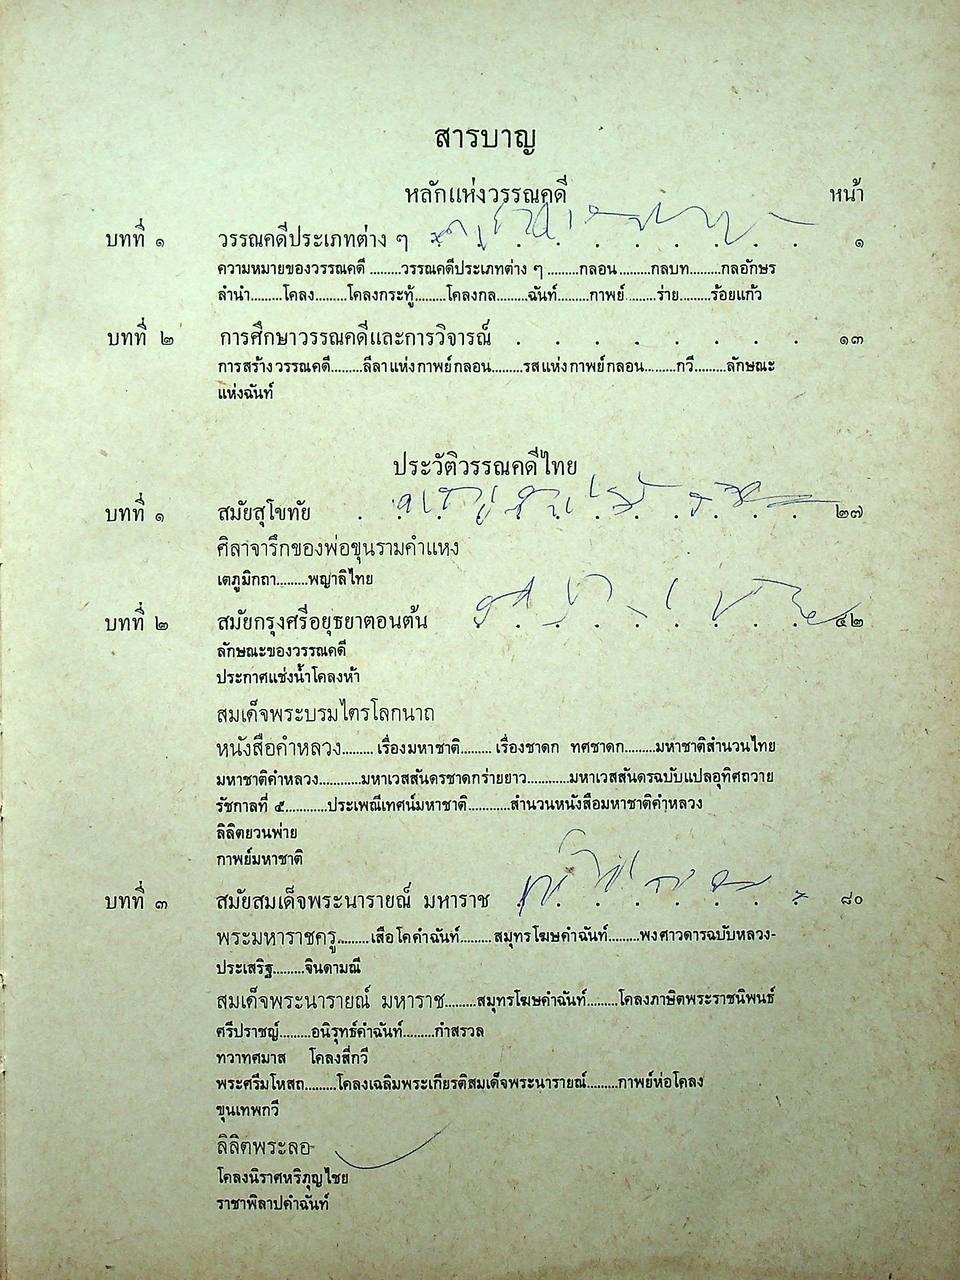 สารบาญ
หลักแห่งวรรณคดี หน้า
บทที่ ๑ วรรณคดีประเภทต่าง ๆ . . . . . . . . ๑
ความหมายของวรรณคดี.........วรรณคดีประเภทต่าง ๆ.........กลอน.........กลบท.........กลอักษร
ลำนำ.........โคลง.........โคลงกระทู้.........โคลงกล.........ฉันท์.........กาพย์.........ร่าย.........ร้อยแก้ว
บทที่ ๒ การศึกษาวรรณคดีและการวิจารณ์ . . . . . . . . ๑๓
การสร้างวรรณคดี.........ลีลาแห่งกาพย์กลอน.........รสแห่งกาพย์กลอน.........กวี.........ลักษณะ
แห่งฉันท์
ประวัติวรรณคดีไทย
บทที่ ๑ สมัยสุโขทัย . . . . . . . . . . . . ๒๗
ศิลาจารึกของพ่อขุนรามคำแหง
เตภูมิกถา.........พญาลิไทย
บทที่ ๒ สมัยกรุงศรีอยุธยาตอนต้น . . . . . . . . . ๔๒
ลักษณะของวรรณคดี
ประกาศแช่งน้ำโคลงห้า
สมเด็จพระบรมไตรโลกนาถ
หนังสือคำหลวง.........เรื่องมหาชาติ.........เรื่องชาดก ทศชาดก.........มหาชาติสำนวนไทย
มหาชาติคำหลวง............มหาเวสสันดรชาดกร่ายยาว............มหาเวสสันดรฉบับแปลอุทิศถวาย
รัชกาลที่ ๕............ประเพณีเทศน์มหาชาติ............สำนวนหนังสือมหาชาติคำหลวง
ลิลิตยวนพ่าย
กาพย์มหาชาติ
บทที่ ๓ สมัยสมเด็จพระนารายณ์ มหาราช . . . . . . . . ๘๐
พระมหาราชครู.........เสือโคคำฉันท์.........สมุทรโฆษคำฉันท์.........พงศาวดารฉบับหลวง-
ประเสริฐ.........จินดามณี
สมเด็จพระนารายณ์ มหาราช.........สมุทรโฆษคำฉันท์.........โคลงภาษิตพระราชนิพนธ์
ศรีปราชญ์.........อนิรุทธ์คำฉันท์.........กำสรวล
ทวาทศมาส โคลงสี่กวี
พระศรีมโหสถ.........โคลงเฉลิมพระเกียรติสมเด็จพระนารายณ์.........กาพย์ห่อโคลง
ขุนเทพกวี
ลิลิตพระลอ
โคลงนิราศหริภุญไชย
ราชาพิลาปคำฉันท์